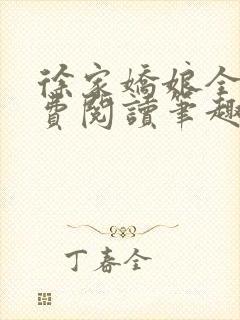 徐家嬌娘全
費閱讀筆趣
丁春全